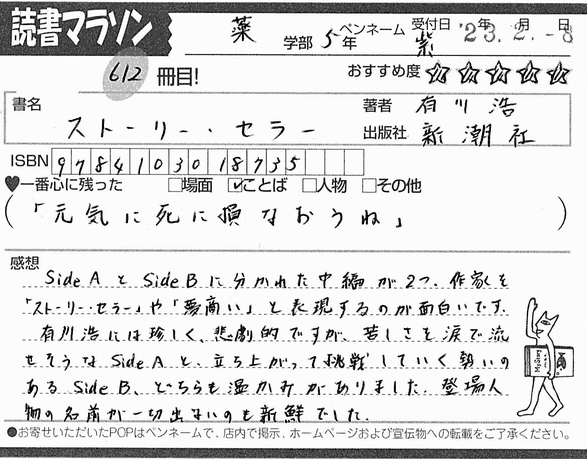 読書マラソン
薬 学部 5年 ペンネーム 紫 受付日 '23年 2月 -8日
612 冊目!
おすすめ度 ☆☆☆☆☆
書名 ストーリー・セラー
著者 有川浩
出版社 新潮社
ISBN 9784103018735
♥一番心に残った □場面 ☑ことば □人物 □その他
(「元気に死に損なおうね」)
感想
Side A と Side B に分かれた中編が2つ。作家を
「ストーリー・セラー」や「夢商い」と表現するのが面白いです。
有川浩には珍しく、悲劇的ですが、苦しさを涙で流
せそうな Side A と、立ち上がって挑戦していく勢いの
ある Side B、どちらも温かみがありました。登場人
物の名前が一切出ないのも新鮮でした。
●お寄せいただいたPOPはペンネームで、店内で掲示、ホームページおよび宣伝物への転載をご了承ください。